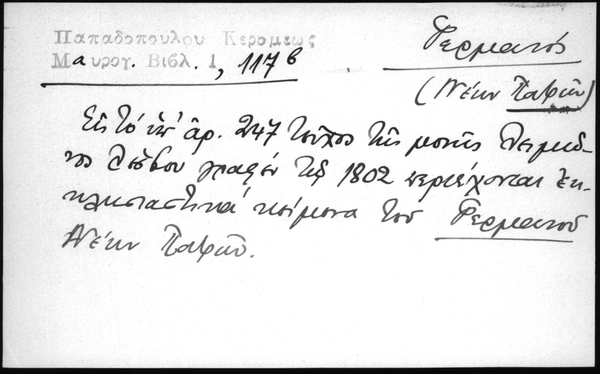 Παπαδοπουλου Κεραμεως
Μαυρογ. Βιβλ. 1, 117β
Γερμανός
(Νέων Πατρῶν)
Εἰς τὸ ὑπ' ἀρ. 247 τεῦχος τῆς μονῆς Λειμῶ-
νος Λέσβου γραφὲν τῷ 1802 περιέχονται ἐκ-
κλησιαστικὰ κείμενα τοῦ Γερμανοῦ
Νέων Πατρῶν.